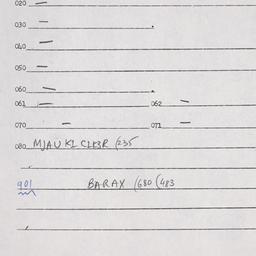 020 —
030 —
040 —
050 —
060 —
061 — 062 —
070 — 071 —
080 MJAU KI CLK3R /235
901 BARAX /680 /483